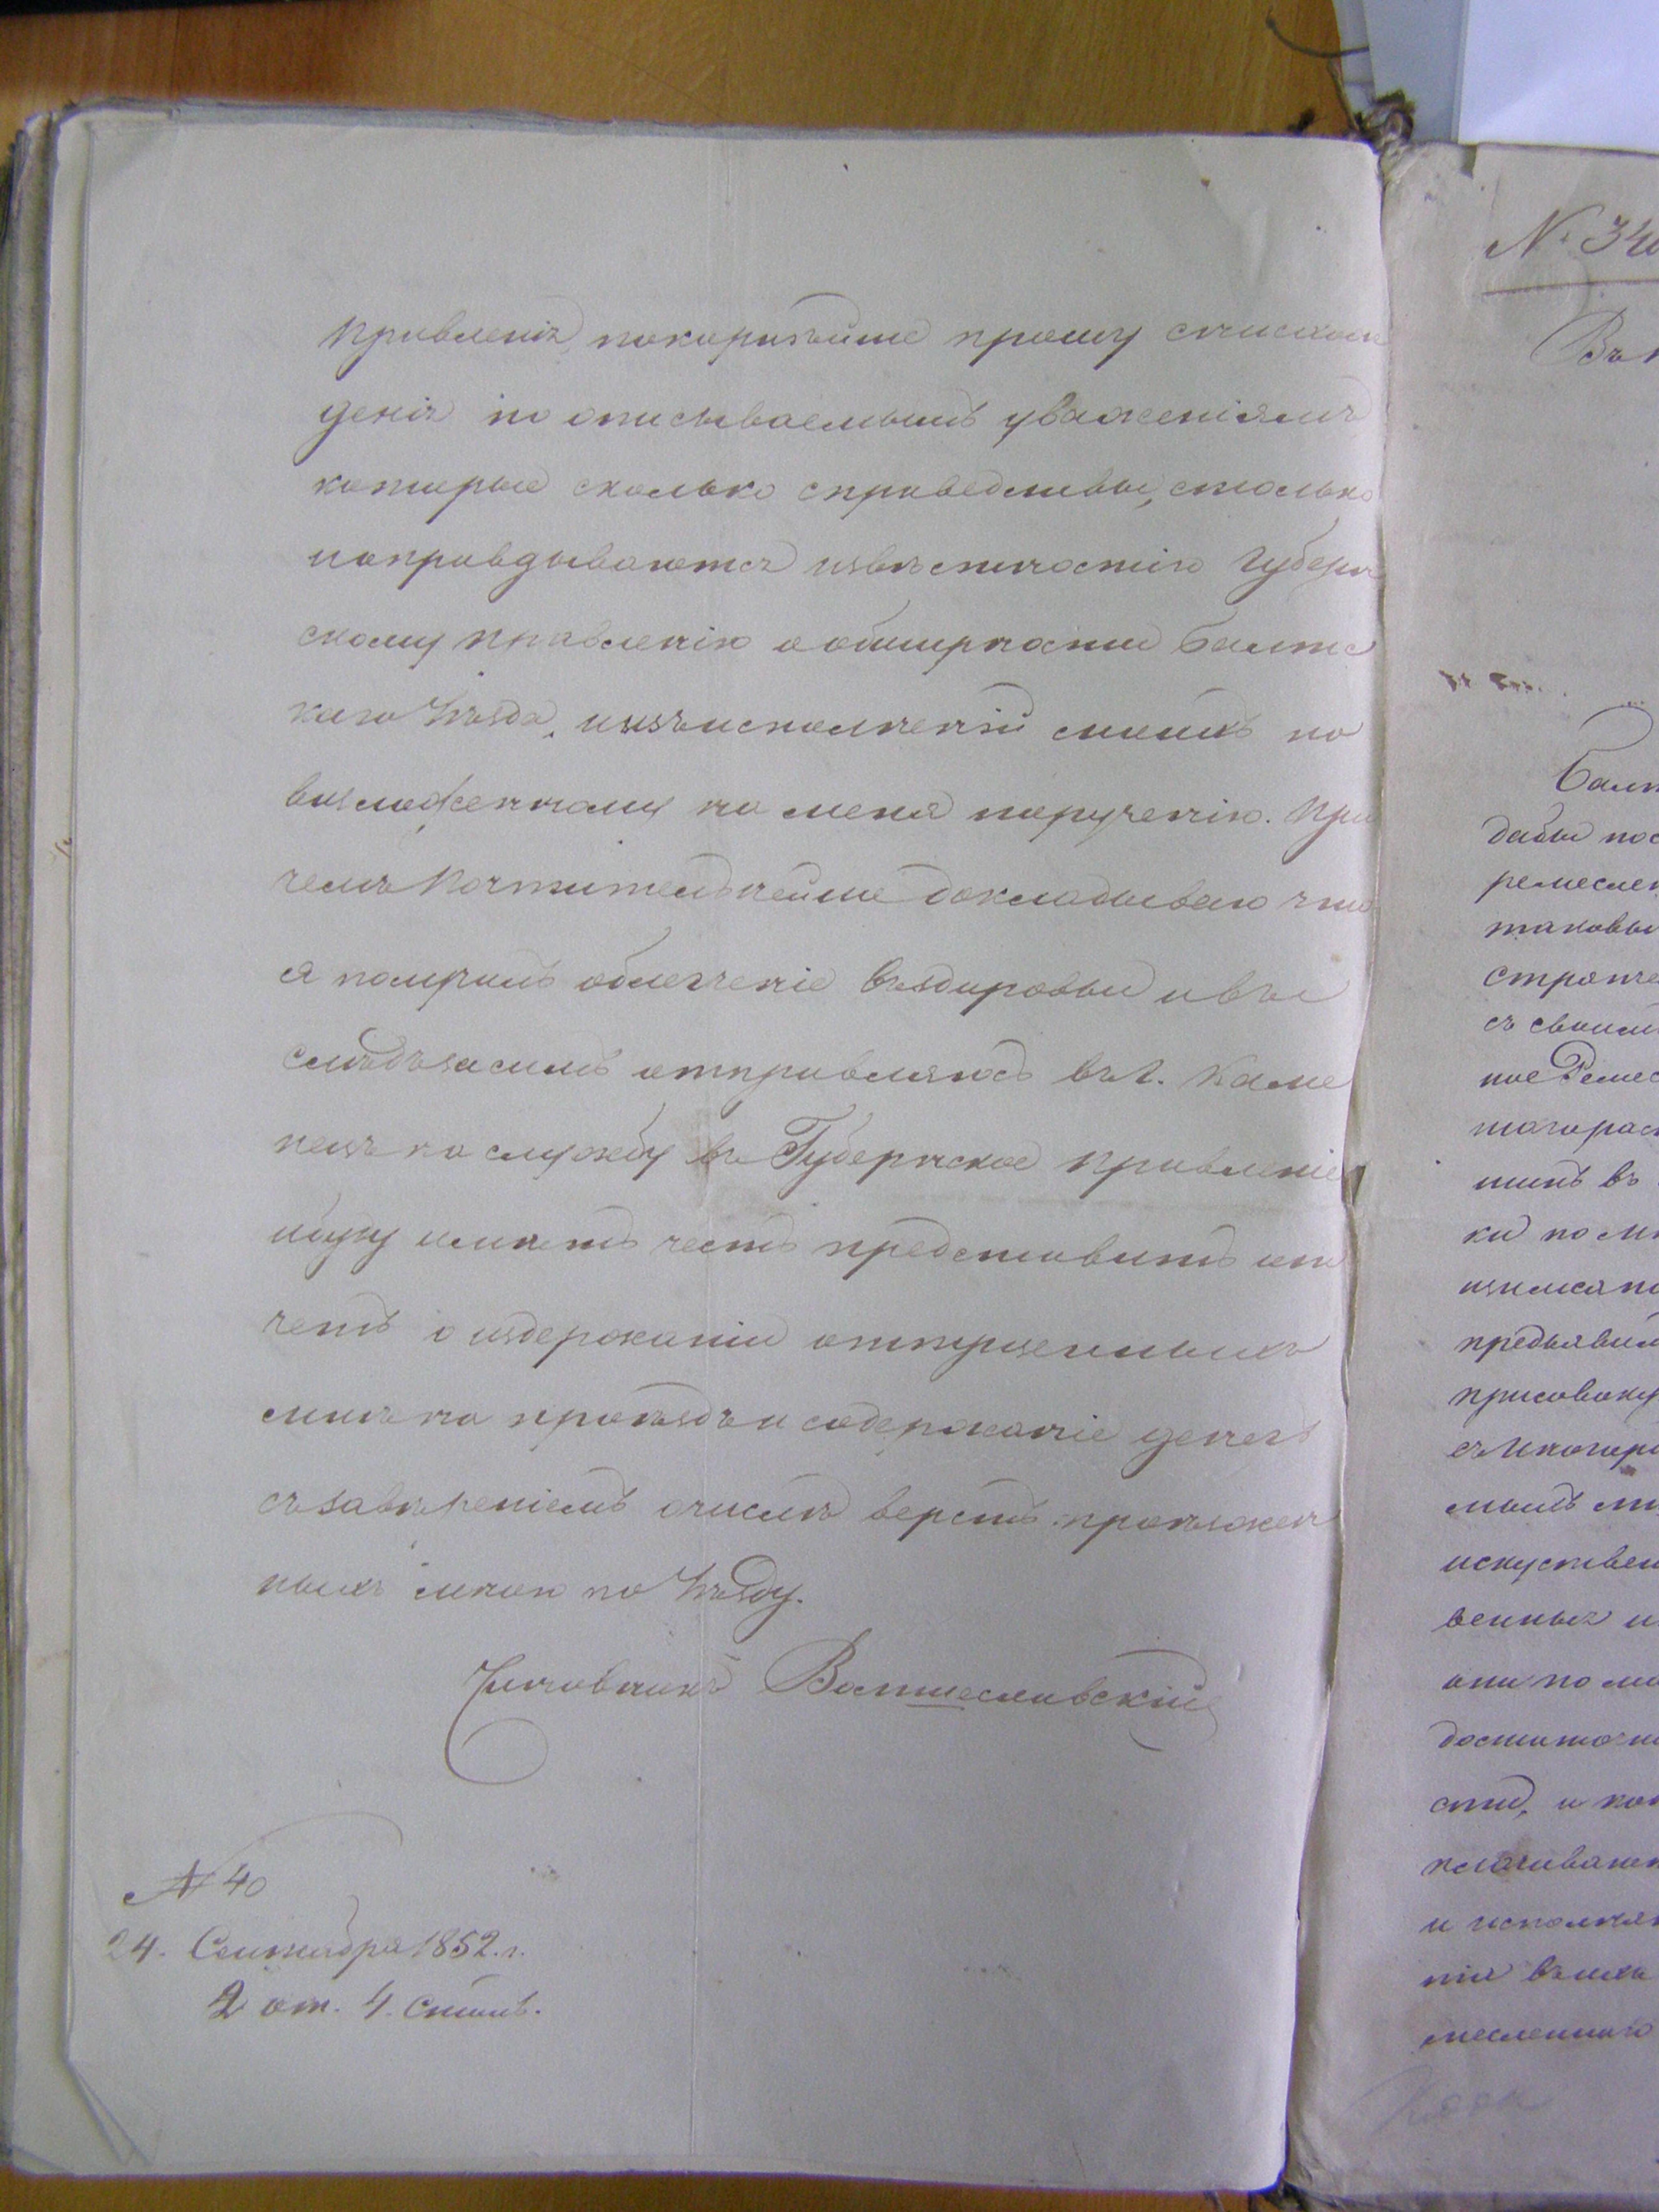 Правленія, покорнѣйше прошу снисхож
денія по описываемымъ уваженіямъ
которые сколько справедливы, столько
иоправдываются извѣстностію Губерн
скому Правленію о обширности Балтс
каго Уѣзда, иизъисполненій моихъ по
возложенному на меня порученію. При
чемъ Почтительнейше докладываю что
я получилъ облегченіе въздоровьи ивъ
слѣдъзасимъ отправляюсь въ г. Каме
нецъ на службу въ Губернское Правленіе
ибуду имѣть честь представить от
четъ о издержаніи отпущенныхъ
мнѣ на проѣздъ и содержаніе денегъ
съ завѣреніемъ о числѣ верстъ проѣзжен
ныхъ мною по Уѣзду.
Чиновникъ
N 40
24. Сентября 1852. г.
2 от. 4. Стол.
N. 34
Въ
Балт
дабы пос
ремеслен
таковы
стряпче
съ своим
ное Ремес
тогорас
шинъ въ
ки по
предъявил
присовоку
съ Иногоро
искуствен
венных и
они по
достаточн
сти, и
и исполня
нія въ
месленнаго